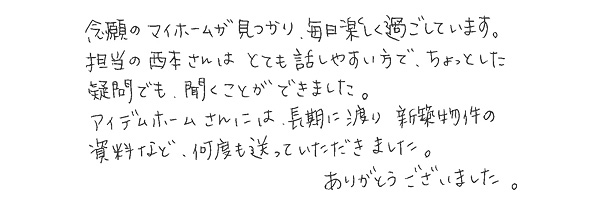 念願のマイホームが見つかり、毎日楽しく過ごしています。
担当の西本さんはとても話しやすい方で、ちょっとした
疑問でも、聞くことができました。
アイデムホームさんには、長期に渡り新築物件の
資料など、何度も送っていただきました。
ありがとうございました。